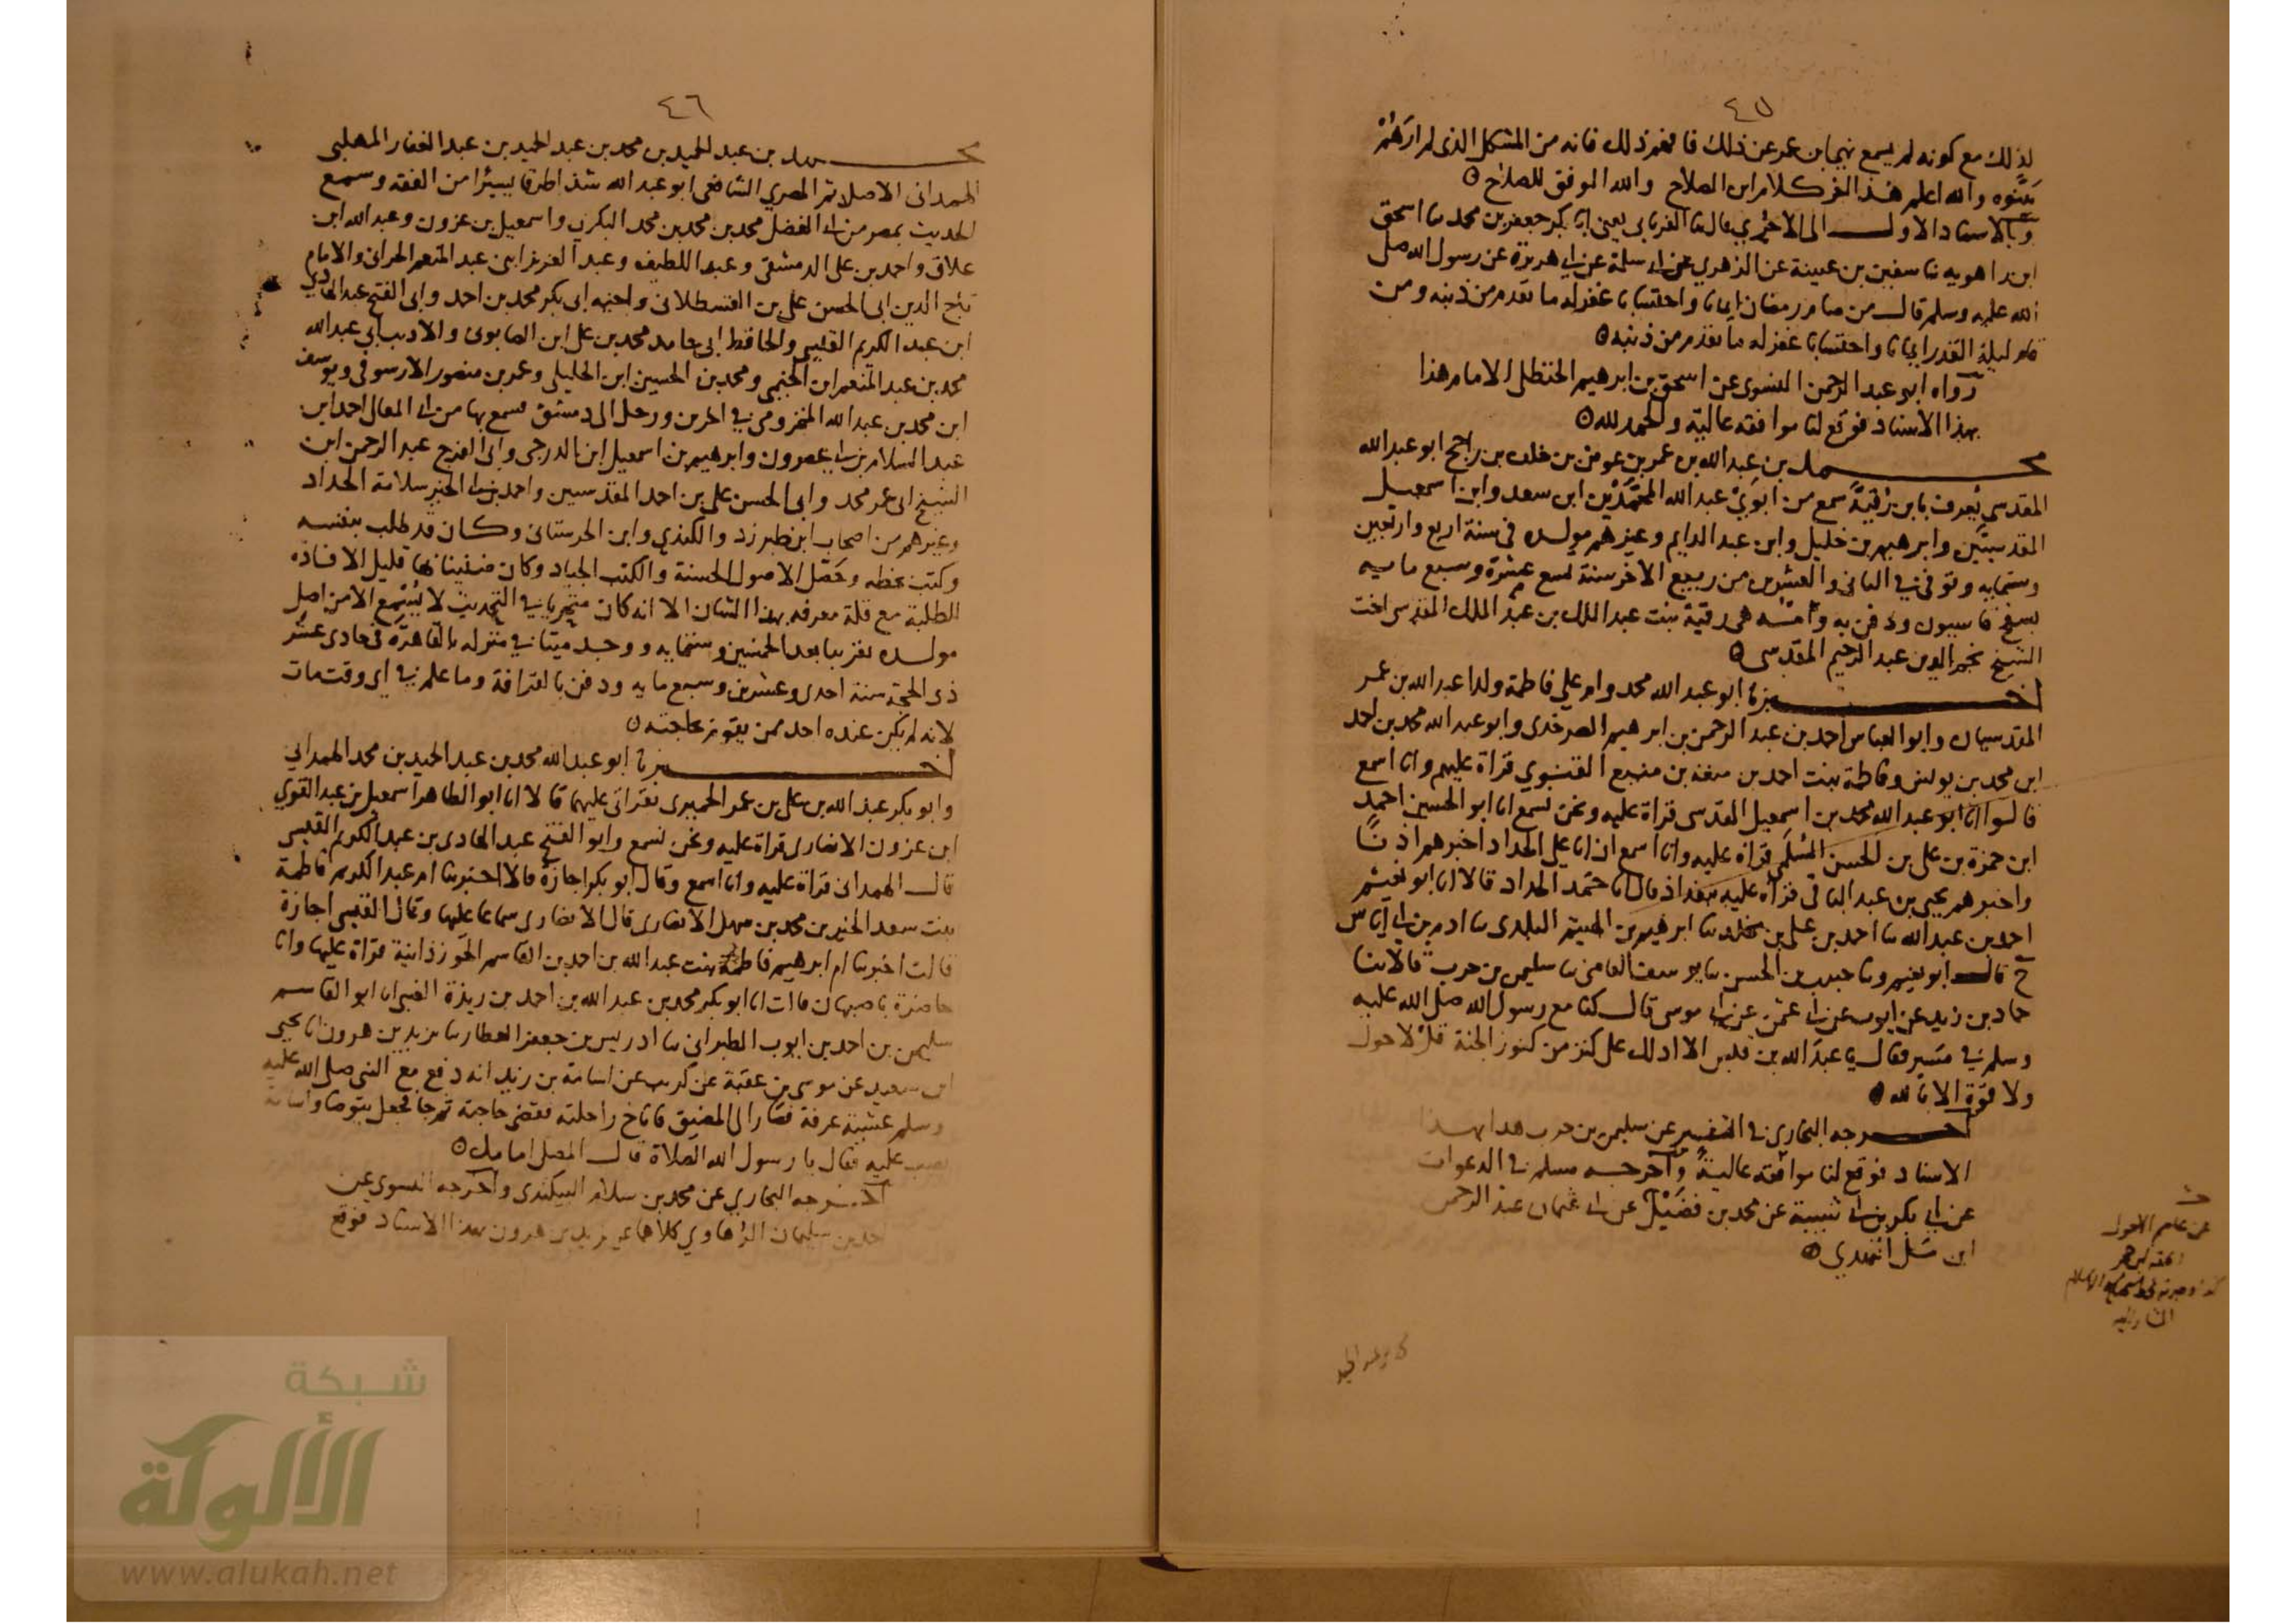 ٤٥
لذلك مع كونه لم يسمع نهيا بن عمر عن ذلك فافهم ذلك فانه من المشكل الذى لم ارهم
بينوه والله اعلم هذا اخر كلام ابن الصلاح والله الموفق للصلاح
وبالاسناد الاول الى الاجري قال ثنا الفريابي يعني ابا بكر جعفر بن محمد ثنا اسحق
ابن راهويه ثنا سفين بن عيينة عن الزهري عن ابي سلمة عن ابي هريرة عن رسول الله صلى
الله عليه وسلم قال من صام رمضان ايمانا واحتسابا غفر له ما تقدم من ذنبه ومن
قام ليلة القدر ايمانا واحتسابا غفر له ما تقدم من ذنبه
رواه ابو عبد الرحمن النسوى عن اسحق بن ابرهيم الحنظلى الامام هذا
بهذا الاسناد فوقع لنا موافقة عالية والحمد لله
محمد بن عبد الله بن عمر بن عوض بن خلف بن راجح ابو عبد الله
المقدسي يعرف بابن رقية سمع من ابوي عبد الله المحمدين ابن سعد وابن اسمعيل
المقدسيين وابرهيم بن خليل وابن عبد الدايم وغيرهم مولده فى سنة اربع واربعين
وستمايه وتوفى في الثانى والعشرين من ربيع الاخر سنة تسع عشرة وسبع مايه
بسفح قاسيون ودفن به وامه هى رقية بنت عبد الملك بن عبد الملك المقدسي اخت
الشيخ نجم الدين عبد الرحيم المقدسى
اخبرنا ابو عبد الله محمد وام علي فاطمة ولدا عبد الله بن عمر
المقدسيان وابو العباس احمد بن عبد الرحمن بن ابرهيم الصرخدى وابو عبد الله محمد بن احمد
ابن محمد بن يونس وفاطمة بنت احمد بن منعة بن منيع القنوي قراة عليهم وانا اسمع
قالوا انا ابو عبد الله محمد بن اسمعيل المقدسى قراة عليه ونحن نسمع انا ابو الحسين احمد
ابن حمزة بن على بن الحسن السلمي قراة عليه وانا اسمع ان ابا على الحداد اخبرهم اذنا
واخبرهم يحيى بن عبد الباقى قراة عليه ببغداذ قال انا حمد الحداد قالا انا ابو نعيم
احمد بن عبد الله ثنا احمد بن على بن مخلد ثنا ابرهيم بن الهيثم البلدى ثنا ادم بن ابي اياس
ح قال ابو نعيم وثنا حبيب بن الحسن ثنا يوسف القاضى ثنا سليمن بن حرب قالا ثنا
حماد بن زيد عن ايوب عن ابي عثمن عن ابي موسى قال كنا مع رسول الله صلى الله عليه
وسلم في مسير فقال يا عبد الله بن قيس الا ادلك على كنز من كنوز الجنة قل لا حول
ولا قوة الا بالله
اخرجه البخارى في التفسير عن سليمن بن حرب هذا بهذا
الاسناد فوقع لنا موافقة عالية واخرجه مسلم في الدعوات
عن ابي بكر بن ابي شيبة عن محمد بن فضيل عن ابي عثمان عبد الرحمن
ابن مل النهدي
عن عاصم الاحول
٤٦
محمد بن عبد الحميد بن محمد بن عبد الحميد بن عبد الغفار المهلبى
الهمدانى الاصل ثم المصري الشافعى ابو عبد الله شذا طرفا يسيرا من الفقه وسمع
الحديث بمصر من ابي الفضل محمد بن محمد بن محمد البكري واسمعيل بن عزون وعبد الله ابن
علاق واحمد بن على الدمشقى وعبد اللطيف وعبد العزيز ابنى عبد المنعم الحرانى والامام
تاج الدين ابى الحسن على بن القسطلانى واخيه ابى بكر محمد بن احمد وابى الفتح عبد الهادي
ابن عبد الكريم القيسي والحافظ ابي حامد محمد بن على ابن الصابونى والاديب ابي عبد الله
محمد بن عبد المنعم ابن الخيمي ومحمد بن الحسين ابن الخليلى وعمر بن منصور الارسوفى ويوسف
ابن محمد بن عبد الله المخزومى في اخرين ورحل الى دمشق فسمع بها من ابي المعالى احمد ابن
عبد السلام بن ابي عصرون وابرهيم بن اسمعيل ابن الدرجى وابى الفرج عبد الرحمن ابن
الشيخ ابى عمر محمد وابى الحسن على بن احمد المقدسيين واحمد بن ابي الخير سلامة الحداد
وغيرهم من اصحاب ابن طبرزد والكندي وابن الحرستانى وكان قد طلب بنفسه
وكتب بخطه وحصل الاصول الحسنة والكتب الجياد وكان ضنينا بها قليل الافادة
للطلبة مع قلة معرفه بهذا الشان الا انه كان متحريا في التحديث لا يسمع الا من اصل
مولده تقريبا بعد الخمسين وستمايه ووجد ميتا في منزله بالقاهرة فى حادى عشر
ذى الحجة سنة احدى وعشرين وسبع مايه ودفن بالقرافة وما علم في اى وقت مات
لانه لم يكن عنده احد ممن يقوم بحاجته
اخبرنا ابو عبد الله محمد بن عبد الحميد بن محمد الهمداني
وابو بكر عبد الله بن على بن عمر الحميرى بقراتى عليهما قالا انا ابو الطاهر اسمعيل بن عبد القوي
ابن عزون الانصارى قراة عليه ونحن نسمع وابو الفتح عبد الهادى بن عبد الكريم القيسى
قال الهمدانى قراة عليه وانا اسمع وقال ابو بكر اجازة قالا اخبرتنا ام عبد الكريم فاطمة
بنت سعد الخير بن محمد بن سهل الانصارى قال الانصارى سماعا عليها وقال القيسى اجازة
قالت اخبرتنا ام ابرهيم فاطمة بنت عبد الله بن احمد بن القاسم الجوزذانية قراة عليها وانا
حاضرة باصبهان قالت انا ابو بكر محمد بن عبد الله بن احمد بن ريذة الضبى انا ابو القاسم
سليمن بن احمد بن ايوب الطبرانى ثنا ادريس بن جعفر العطار ثنا يزيد بن هرون انا يحيى
ابن سعيد عن موسى بن عقبة عن كريب عن اسامة بن زيد انه دفع مع النبى صلى الله عليه
وسلم عشية عرفة فصار الى المضيق فاناخ راحلته فقضى حاجته ثم جا فجعل يتوضا واسامة
يصب عليه فقال يا رسول الله الصلاة قال المصلى امامك
اخرجه البخاري عن محمد بن سلام البيكندى واخرجه النسوى عن
احمد بن سليمان الرهاوي كلاهما عن يزيد بن هرون بهذا الاسناد فوقع
شبكة
الألوكة
www.alukah.net